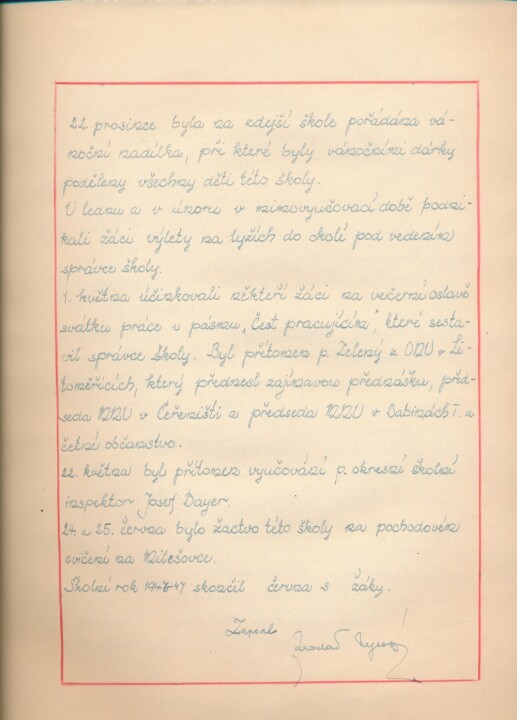 22. prosince byla na zdejší škole pořádána vá-
noční nadílka, při které byly vánočními dárky
poděleny všechny děti této školy.
V lednu a v únoru v mimovyučovací době podni-
kali žáci výlety na lyžích do okolí pod vedením
správce školy.
1. května účinkovali někteří žáci na večerní oslavě
svátku práce v pásmu „Čest pracujícím", které sesta-
vil správce školy. Byl přítomen p. Zelený z ONV v Li-
toměřicích, který přednesl zajímavou přednášku, před-
seda MNV v Čeřeništi a předseda MNV v Babinách I. a
četní občanstvo.
22. května byl přítomen vyučování p. okresní školní
inspektor Josef Bayer.
24. a 25. června bylo žactvo této školy na pochodovém
cvičení na Milešovce.
Školní rok 1946-47 skončil června s žáky.
Zapsal